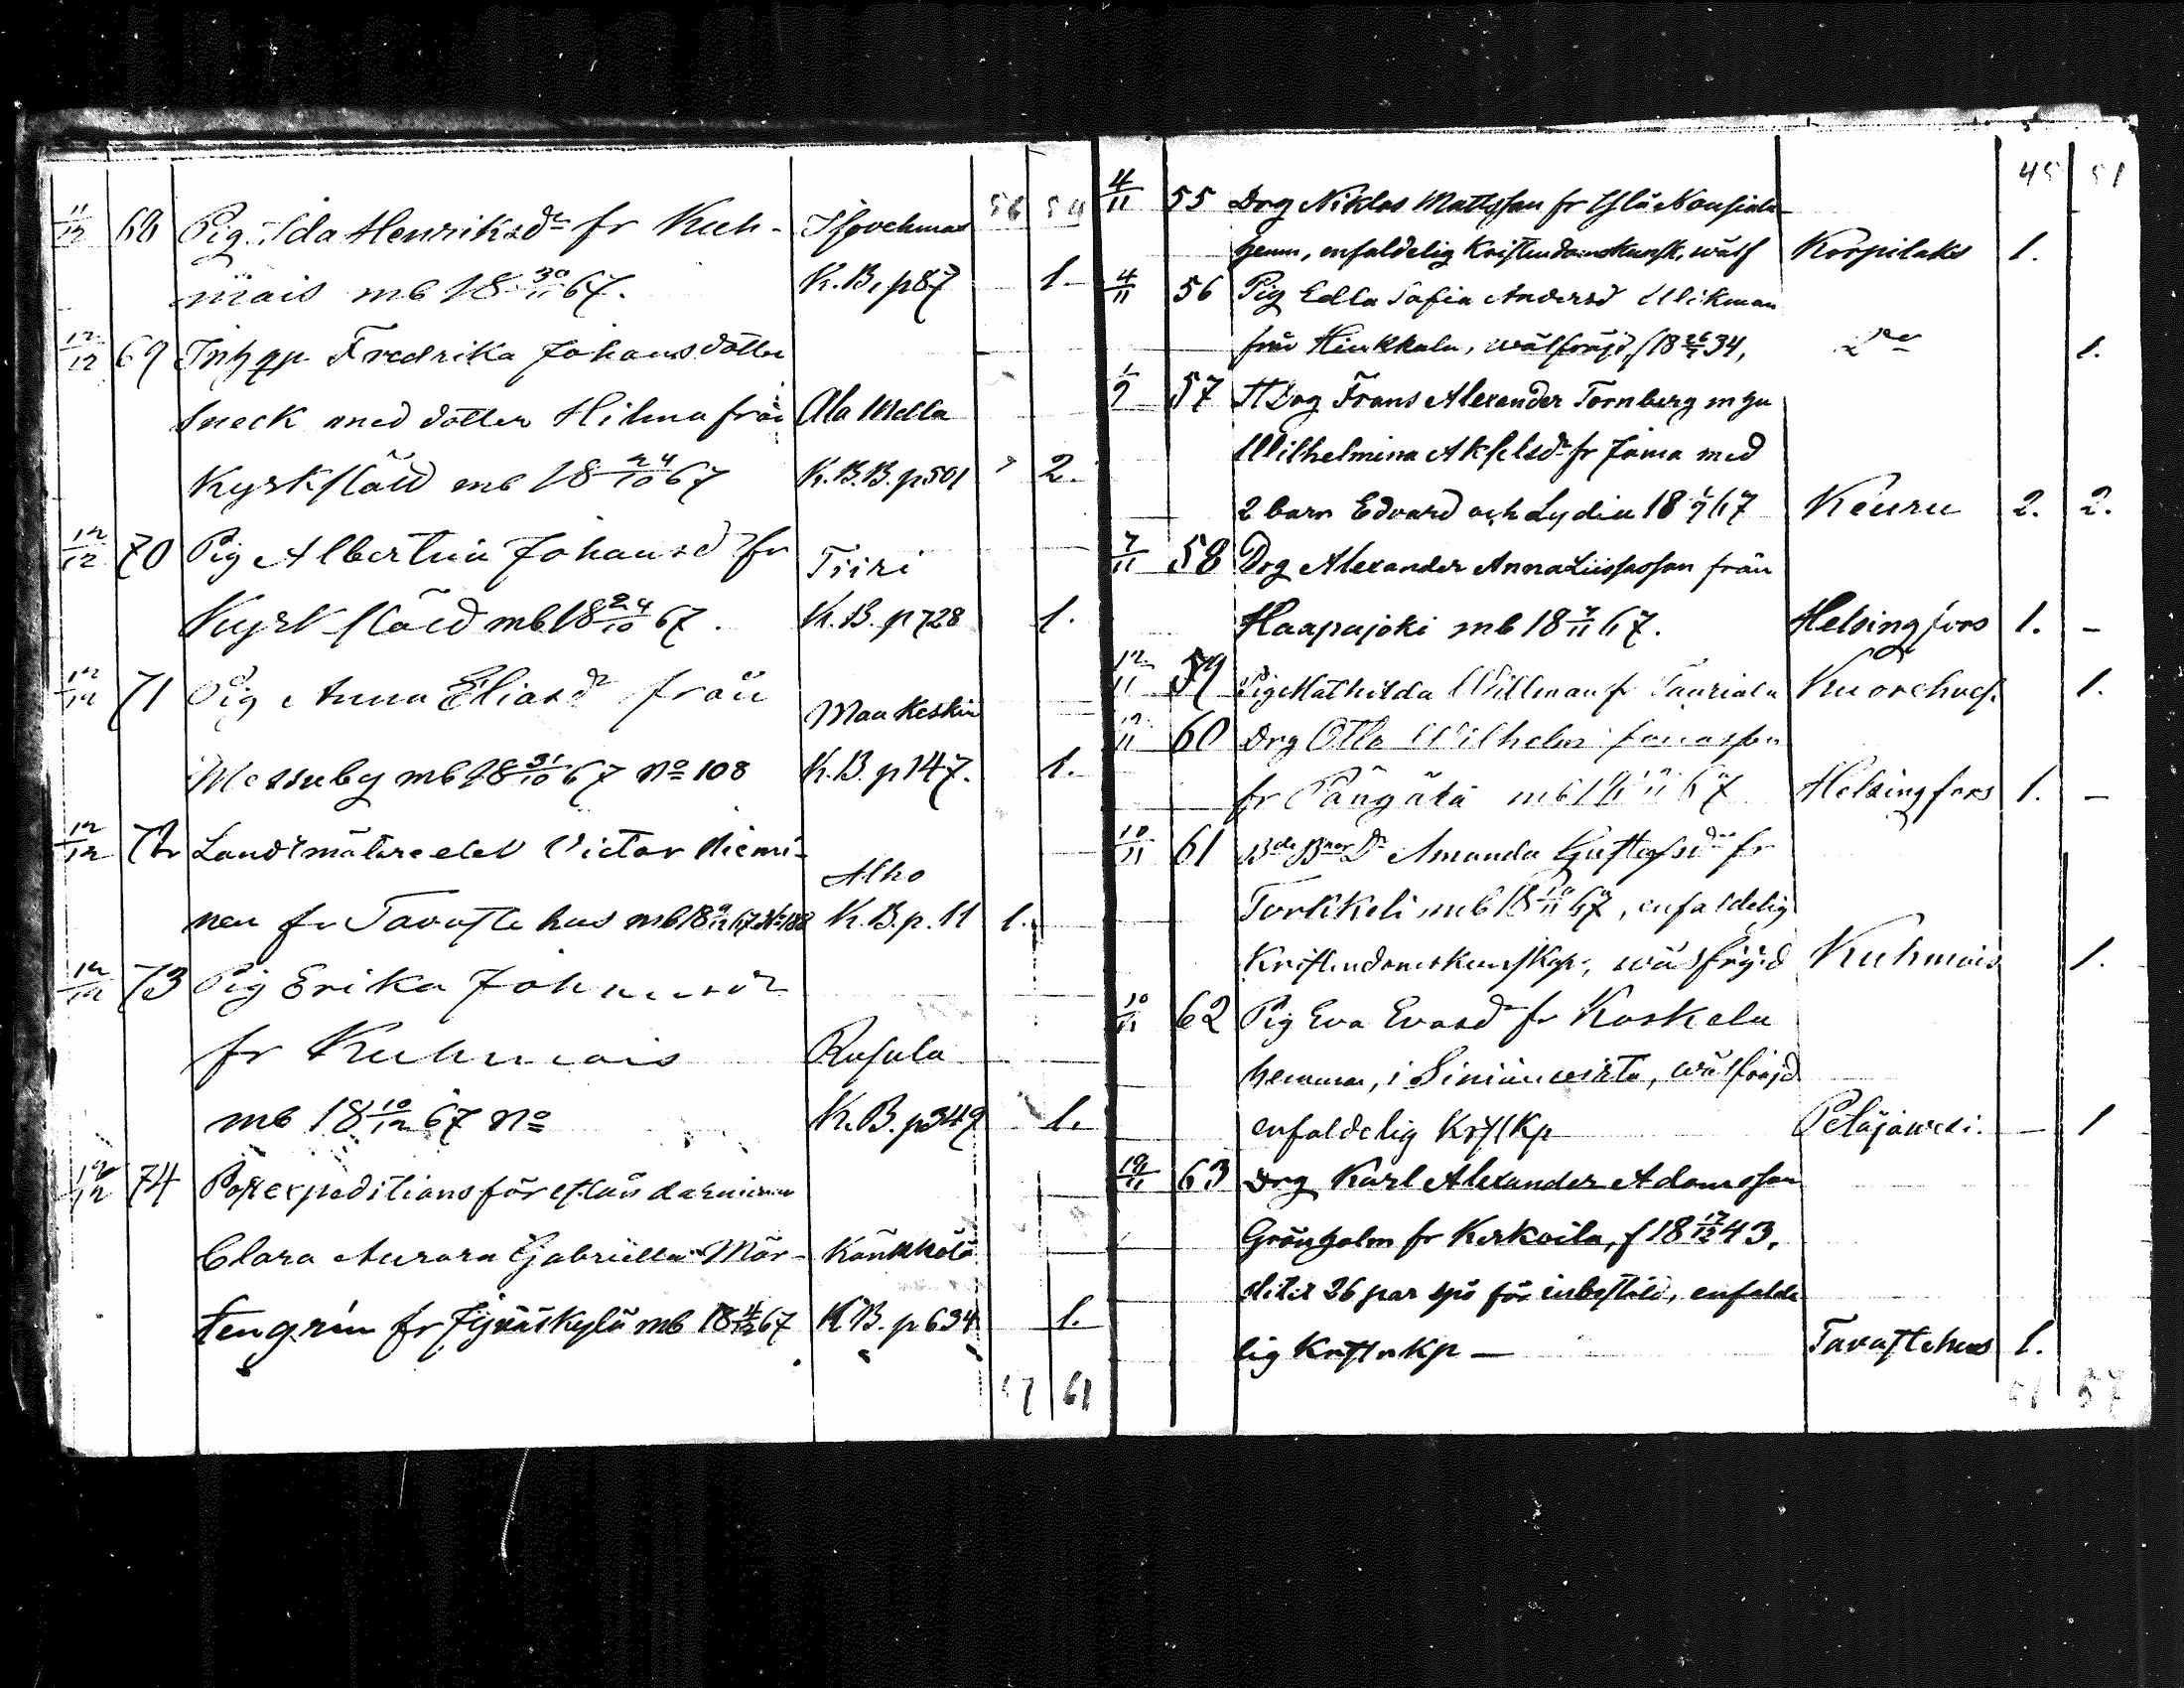 56 54
11/12 68 Pig Ida Henriksdr fr Kuh-
mois mb 18 30/11 67. K.B. p 87 1
12/12 69 Inhpp Fredrika Johansdotter
Sneck med dotter Hilma från Ala Mella
Kyrkslätt mb 18 24/10 67 K.B.B. p 501 2.
12/12 70 Pig Albertina Johansdr fr Tiiri
Kyrkslätt mb 18 24/10 67. K.B. p 728 1.
12/12 71 Pig Anna Eliasdr från Maakeski
Messuby mb 18 31/10 67 No 108 K.B. p 147. 1.
12/12 72 Landtmätareelev Victor Niemi-
Alho
nen fr Tavastehus K.B. p. 11 1.
12/12 73 Pig Erika Johansdr
fr Kuhmois Rusula
mb 18 10/12 67 No K.B. p 349 1.
12/12 74 Postexpeditionsföreståndarinnan
Clara Aurora Gabriella Mår-
tengrén fr Jyväskylä mb 18 4/12 67 K.B. p 634 1.
57 61
45 51
4/11 55 Drg Niklas Mattsson fr
hemm, enfaldelig Kristendomskunsk, wälf Korpilaks 1.
4/11 56 Pig Edla Sofia Andersd Wikman
från Hinkkala, wälfräjd, f 18 34, Do 1.
1/9 57 Drg Frans Alexander Tornberg m hu
Wilhelmina Akselsdr fr Jämsä med
2 barn Edvard och Lydia 18 1/9 67 Keuru 2. 2.
7/11 58 Drg Alexander Annaliisasson från
Haapajoki mb 18 7/11 67. Helsingfors 1. -
12/11 59 Pig Mathilda Willman fr Tauriala Kuorehves. 1.
12/11 60 Drg Otto Wilhelm Jonasson
fr Helsingfors 1. -
10/11 61 Amanda Gustafsdr fr
Torkkeli mb 18 10/11 67, enfaldelig
Kristendomskunskap, wälfräjd Kuhmois 1.
10/11 62 Pig Eva Evasdr fr Koskela
hemman, i wälfräjd
enfaldelig Krstkp Petäjäwesi. - 1
19/11 63 Drg Karl Alexander Adamsson
Grönholm fr Kerkoila, f 18 17/12 43.
26 par spö för enfalde
lig Krstnkp - Tavastehus 1.
61 57